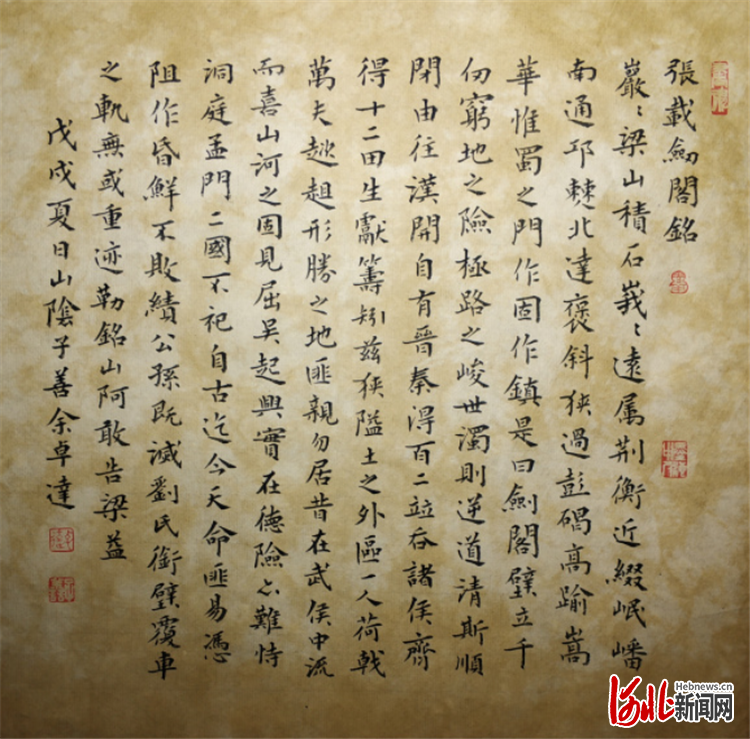 張載劍閣銘
巖〻梁山積石峩〻遠属荆衡近綴岷嶓
南通邛棘北達褒斜狭過彭碣高踰嵩
華惟蜀之門作固作鎮是曰劍閣壁立千
仞窮地之險極路之峻世濁則逆道清斯順
閉由往漢開自有晉秦得百二竝吞諸侯齊
得十二田生獻籌矧兹狭隘土之外區一人荷戟
萬夫趑趄形勝之地匪親勿居昔在武侯中流
而喜山河之固見屈吴起興實在德險亦難恃
洞庭孟門二國不祀自古迄今天命匪易憑
阻作昏鮮不敗績公孫既滅劉氏銜璧覆車
之軌無或重迹勒銘山阿敢告梁益
戊戌夏日山陰子善余卓達
河北新闻网
Hebnews.cn